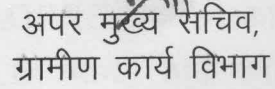 अपर मुख्य सचिव,
ग्रामीण कार्य विभाग